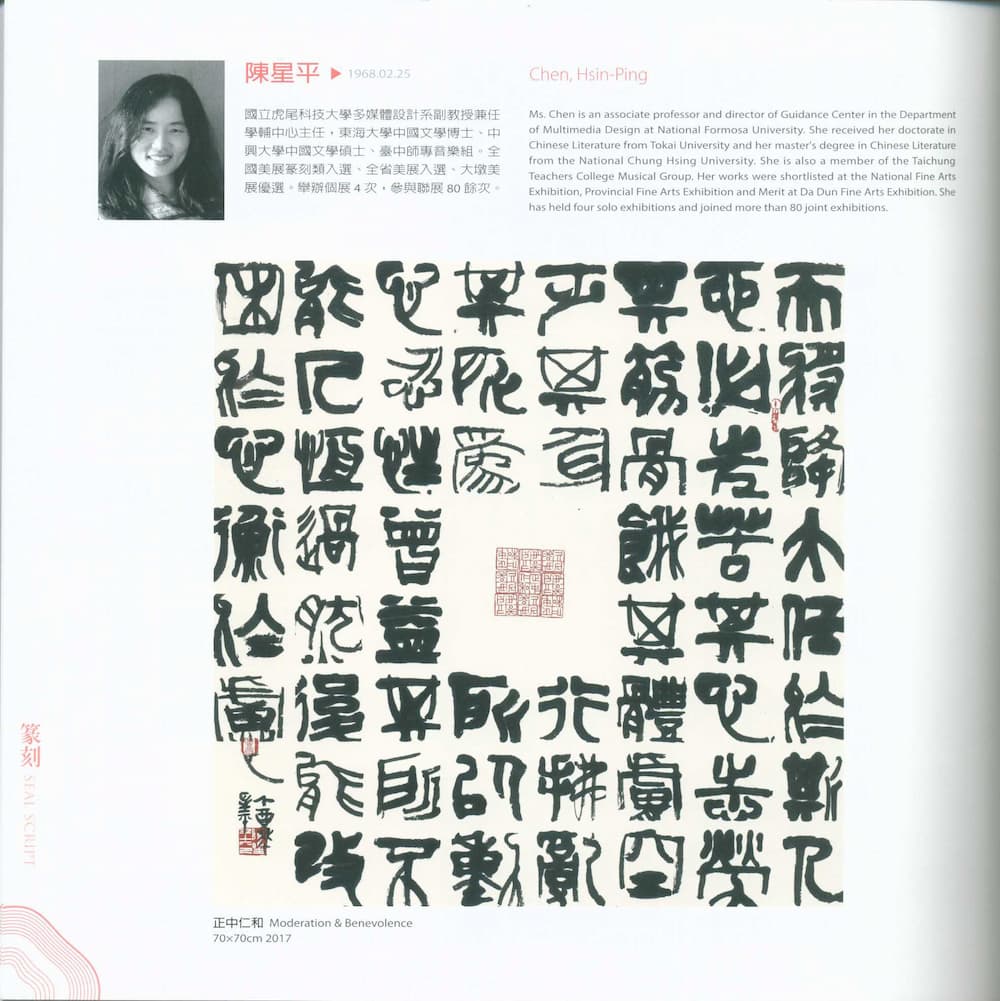 陳星平 ▶ 1968.02.25
國立虎尾科技大學多媒體設計系副教授兼任
學輔中心主任，東海大學中國文學博士、中
興大學中國文學碩士、臺中師專音樂組。全
國美展篆刻類入選、全省美展入選、大墩美
展優選。舉辦個展 4 次，參與聯展 80 餘次。
Chen, Hsin-Ping
Ms. Chen is an associate professor and director of Guidance Center in the Department
of Multimedia Design at National Formosa University. She received her doctorate in
Chinese Literature from Tokai University and her master's degree in Chinese Literature
from the National Chung Hsing University. She is also a member of the Taichung
Teachers College Musical Group. Her works were shortlisted at the National Fine Arts
Exhibition, Provincial Fine Arts Exhibition and Merit at Da Dun Fine Arts Exhibition. She
has held four solo exhibitions and joined more than 80 joint exhibitions.
而降大任於斯人
也必先苦其心志勞
其筋骨餓其體膚空
乏其身行拂亂
其所為所以動
心忍性曾益其所不
能人恆過然後能改
困於心衡於慮
篆刻 SEAL SCRIPT
正中仁和 Moderation & Benevolence
70×70cm 2017